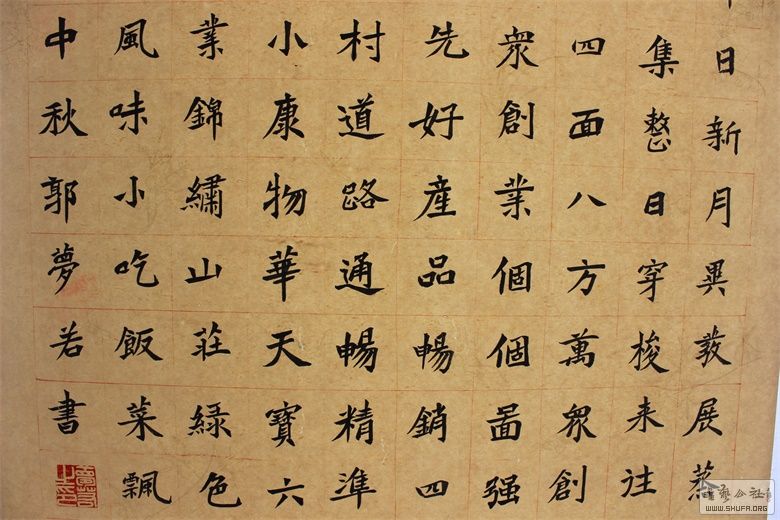 日新月異發展蒸
集整日穿梭來往
四面八方萬眾創
眾創業個個圖强
先好產品暢銷四
村道路通暢精準
小康物華天寶六
業錦繡山莊綠色
風味小吃飯菜飄
中秋郭夢若書
藝公社
WWW.SHUFA.ORG